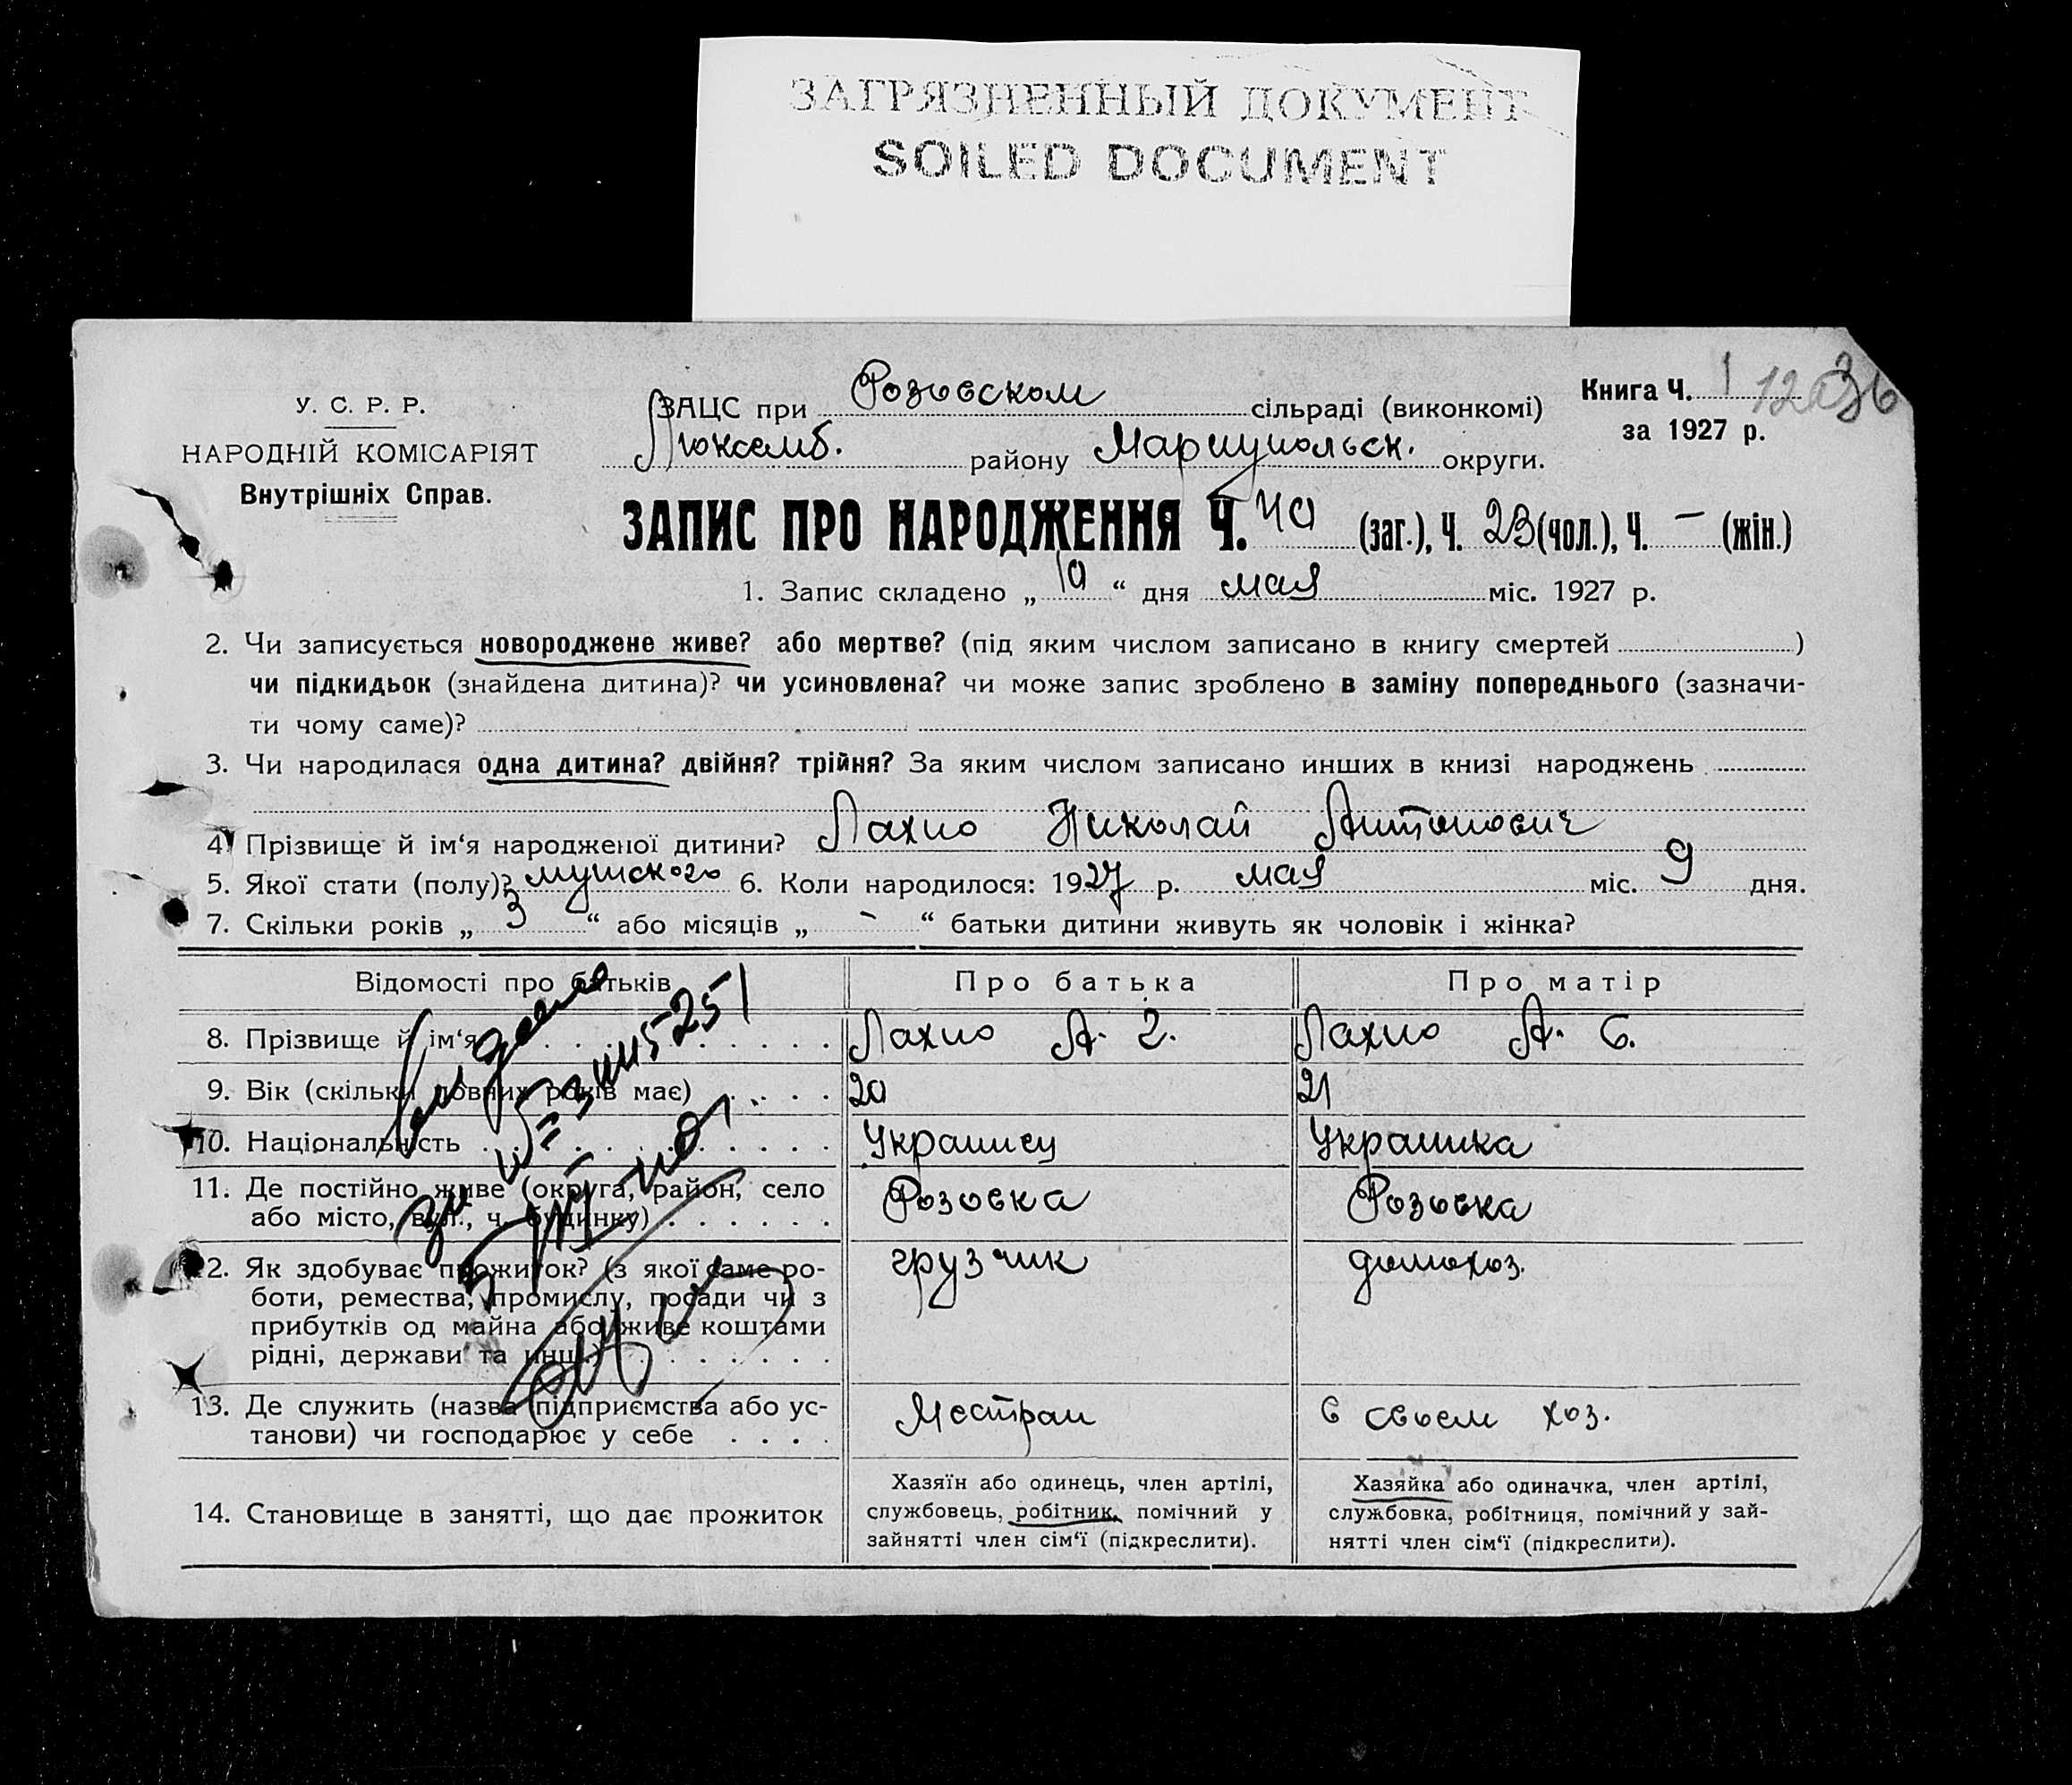 ЗАГРЯЗНЕННЫЙ ДОКУМЕНТ
SOILED DOCUMENT
У. С. Р. Р.
НАРОДНІЙ КОМІСАРІЯТ
Внутрішніх Справ.
ЗАЦС при Розовском сільраді (виконкомі)
Люксемб. району Мариупольск. округи.
Книга Ч. 1
за 1927 р.
ЗАПИС ПРО НАРОДЖЕННЯ Ч. 40 (заг.), Ч. 23 (чол.), Ч. – (жін.)
1. Запис складено „ 10 “ дня мая міс. 1927 р.
2. Чи записується новороджене живе? або мертве? (під яким числом записано в книгу смертей )
чи підкидьок (знайдена дитина)? чи усиновлена? чи може запис зроблено в заміну попереднього (зазначи-
ти чому саме)?
3. Чи народилася одна дитина? двійня? трійня? За яким числом записано инших в книзі народжень
4. Прізвище й ім‘я народженої дитини? Лахно Николай Антонович
5. Якої стати (полу)? мужского 6. Коли народилося: 1927 р. мая міс. 9 дня.
7. Скільки років „ 3 “ або місяців „ – “ батьки дитини живуть як чоловік і жінка?
Відомості про батьків Про батька Про матір
8. Прізвище й ім‘я Лахно А. Г. Лахно А. С.
9. Вік (скільки повних років має) 20 21
10. Національність Украинец Украинка
11. Де постійно живе (округа, район, село
або місто, вул., ч. будинку) Розовка Розовка
12. Як здобуває прожиток? (з якої саме ро-
боти, ремества, промислу, посади чи з
прибутків од майна або живе коштами
рідні, держави та инш.) грузчик домохоз.
13. Де служить (назва підприємства або ус-
танови) чи господарює у себе Местран в своем хоз.
14. Становище в занятті, що дає прожиток
Хазяїн або одинець, член артілі,
службовець, робітник, помічний у
зайнятті член сім‘ї (підкреслити).
Хазяйка або одиначка, член артілі,
службовка, робітниця, помічний у зай-
нятті член сім‘ї (підкреслити).